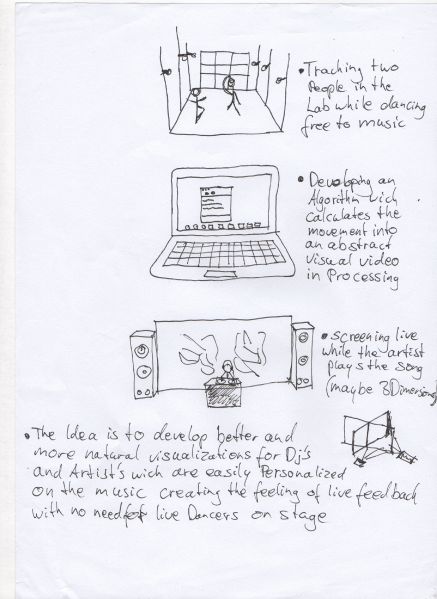 • Tracking two
People in the
Lab while dancing
free to music
• Developing an
Algorithm wich
calculates the
movement into
an abstract
visual video
in Processing
• screening live
while the artist
plays the song
(maybe 3Dimensional)
• The Idea is to develop better and
more natural visualizations for Dj's
and Artist's wich are easily Personalized
on the music creating the feeling of live feedback
with no need of live Dancers on stage